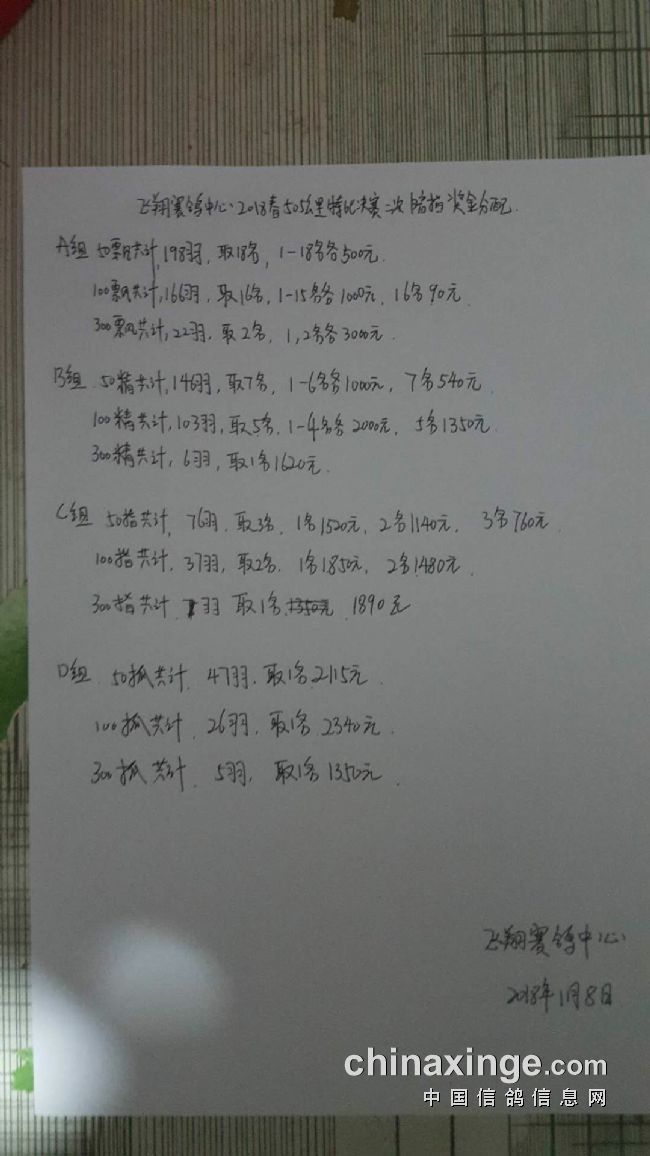 飞翔赛鸽中心2018春505公里特比决赛二次暗指奖金分配
A组 50票飘共计,198羽,取18名,1-18名各500元.
100票飘共计,166羽,取16名,1-15名各1000元,16名90元.
300票飘共计,22羽.取2名,1,2名各3000元.
B组.50精共计,146羽,取7名,1-6名各1000元,7名540元.
100精共计,103羽,取5名,1-4名各2000元.5名1350元.
300精共计,6羽,取1名1620元.
C组 50指共计,76羽.取3名.1名1520元,2名1140元.3名760元
100指共计.37羽,取2名.1名1850元,2名1480元.
300指共计.7羽 取1名.1350元 1890元
D组.50抓共计.47羽.取1名2115元.
100抓共计.26羽.取1名.2340元.
300抓共计.5羽,取1名1350元.
飞翔赛鸽中心
2018年1月8日
chinaxinge.com
中国信鸽信息网